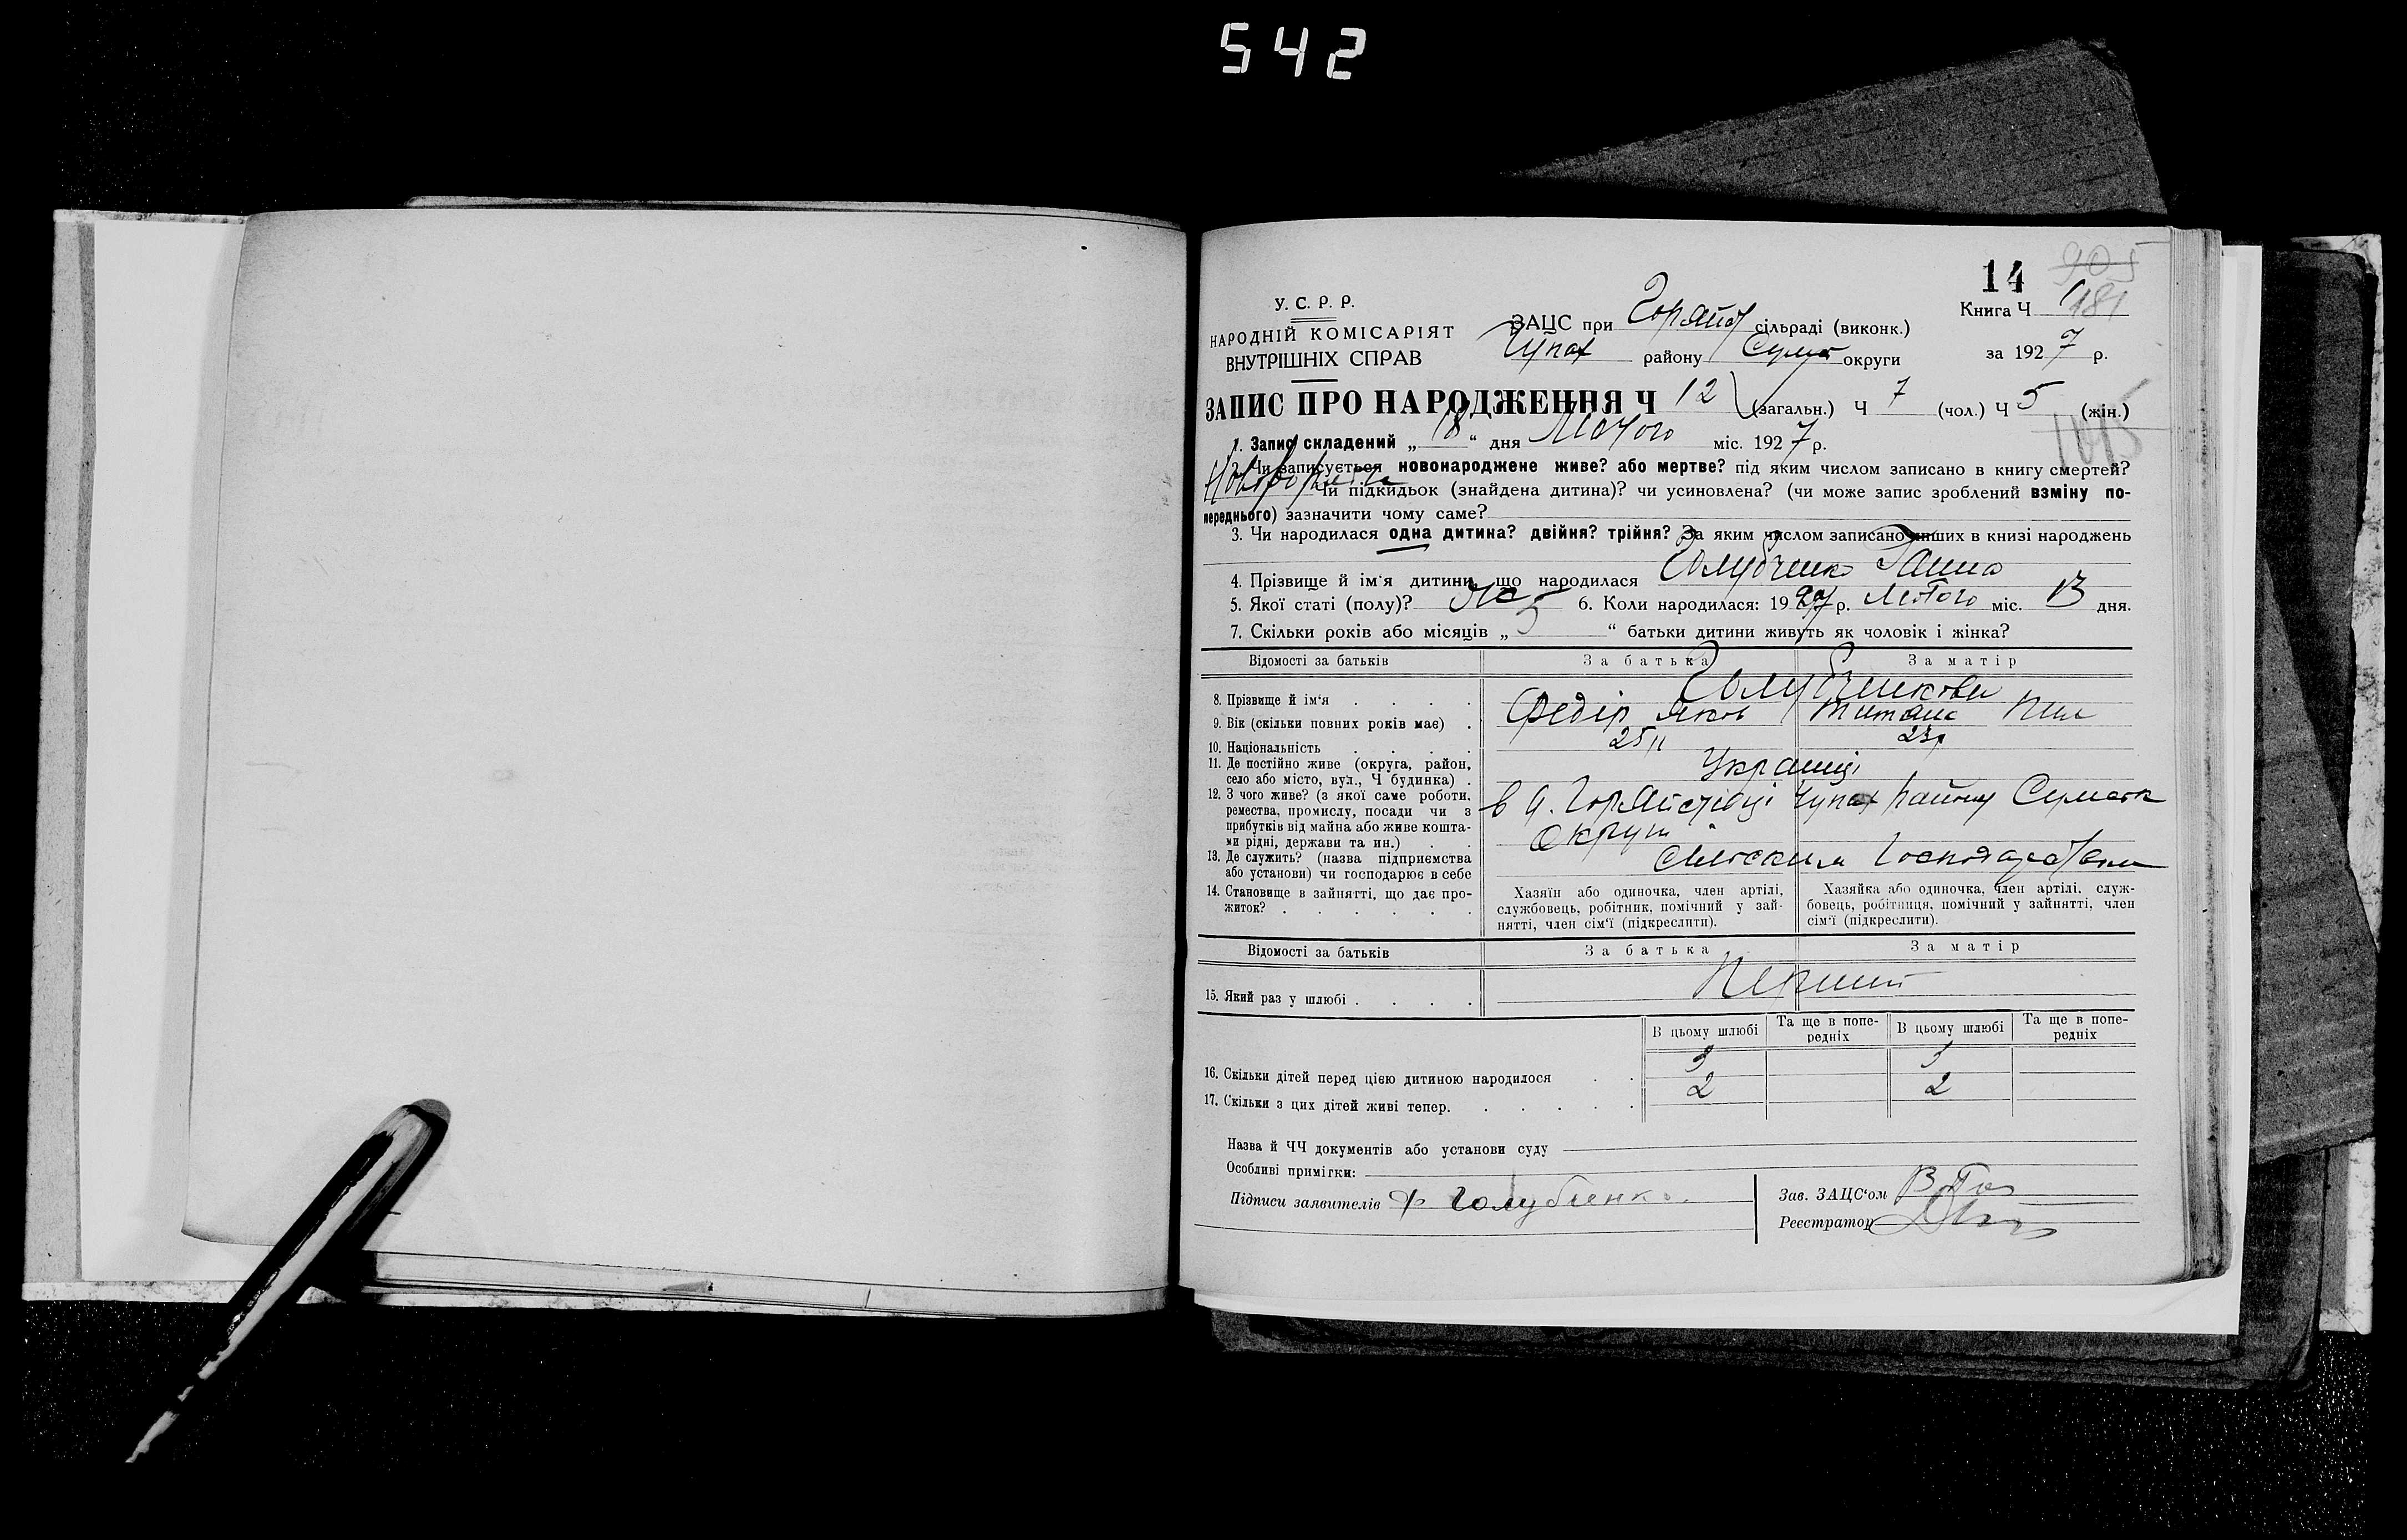 542
14
905
181
У. С. Р. Р.
НАРОДНІЙ КОМІСАРІЯТ
ВНУТРІШНІХ СПРАВ
ЗАЦС при сільраді (виконк.)
Чупах району Сумс округи
Книга Ч
за 1927 р.
ЗАПИС ПРО НАРОДЖЕННЯ Ч 12 (загальн.) Ч 7 (чол.) Ч 5 (жін.)
1. Запис складений „ 18 “ дня Лютого міс. 1927 р.
2. Чи записується новонароджене живе? або мертве? під яким числом записано в книгу смертей?
Чи підкидьок (знайдена дитина)? чи усиновлена? (чи може запис зроблений взміну по-
переднього) зазначити чому саме?
3. Чи народилася одна дитина? двійня? трійня? За яким числом записано инших в книзі народжень
4. Прізвище й ім'я дитини, що народилася Голубченко Ганна
5. Якої статі (полу)? Жс 6. Коли народилася: 1927 р. Лютого міс. 13 дня.
7. Скільки років або місяців „ 5 “ батьки дитини живуть як чоловік і жінка?
Відомості за батьків За батька За матір
Голубченкови
8. Прізвище й ім'я Федір Яков Титяна
9. Вік (скільки повних років має) 25 23
10. Національність Українці
11. Де постійно живе (округа, район,
село або місто, вул., Ч будинка) в Чупах району Сумськ
округи
12. З чого живе? (з якої саме роботи,
ремества, промислу, посади чи з
прибутків від майна або живе кошта-
ми рідні, держави та ин.)
13. Де служить? (назва підприємства
або установи) чи господарює в себе
14. Становище в зайнятті, що дає про-
житок?
Хазяїн або одиночка, член артілі,
службовець, робітник, помічний у зай-
нятті, член сім'ї (підкреслити).
Хазяйка або одиночка, член артілі, служ-
бовець, робітниця, помічний у зайнятті, член
сім'ї (підкреслити).
Відомості за батьків За батька За матір
15. Який раз у шлюбі Перший
В цьому шлюбі Та ще в попе-
редніх В цьому шлюбі Та ще в попе-
редніх
16. Скільки дітей перед цією дитиною народилося 3 3
17. Скільки з цих дітей живі тепер. 2 2
Назва й ЧЧ документів або установи суду
Особливі примітки:
Підписи заявителів Ф Голубченко
Зав. ЗАЦС'ом
Реєстратор